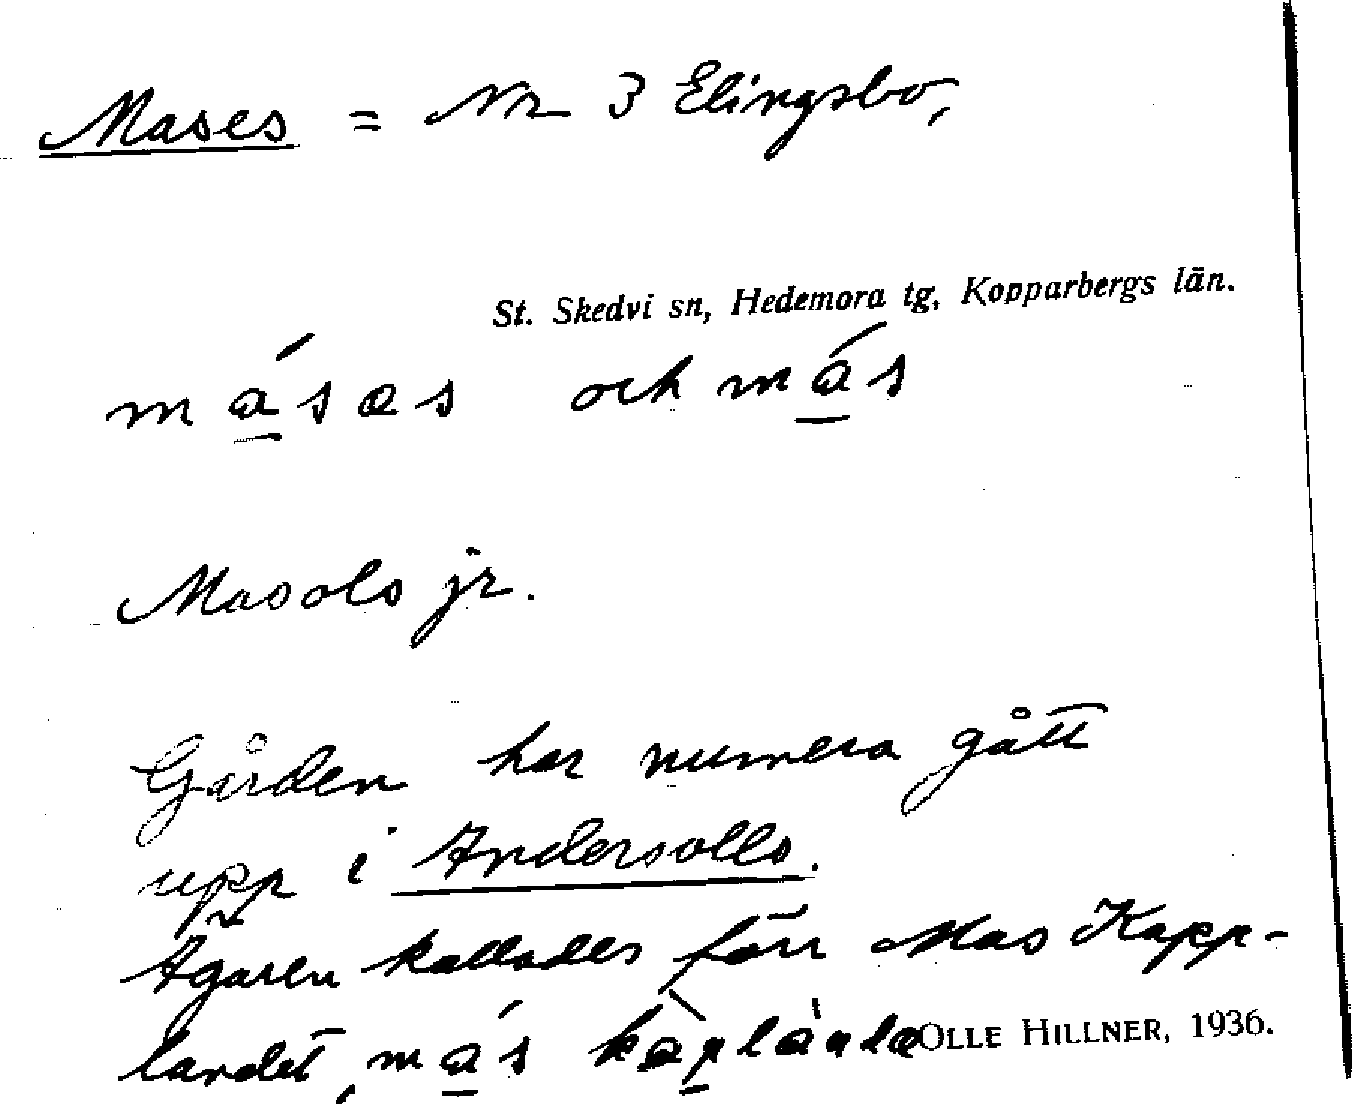 Mases = Nr 3 Elingsbo,
St. Skedvi sn, Hedemora tg, Kopparbergs län.
másəs och más
Masols jr.
Gården har numera gått
upp i Andersolls.
Ägaren kallades förr Mas Kapp-
landet, más
OLLE HILLNER, 1936.